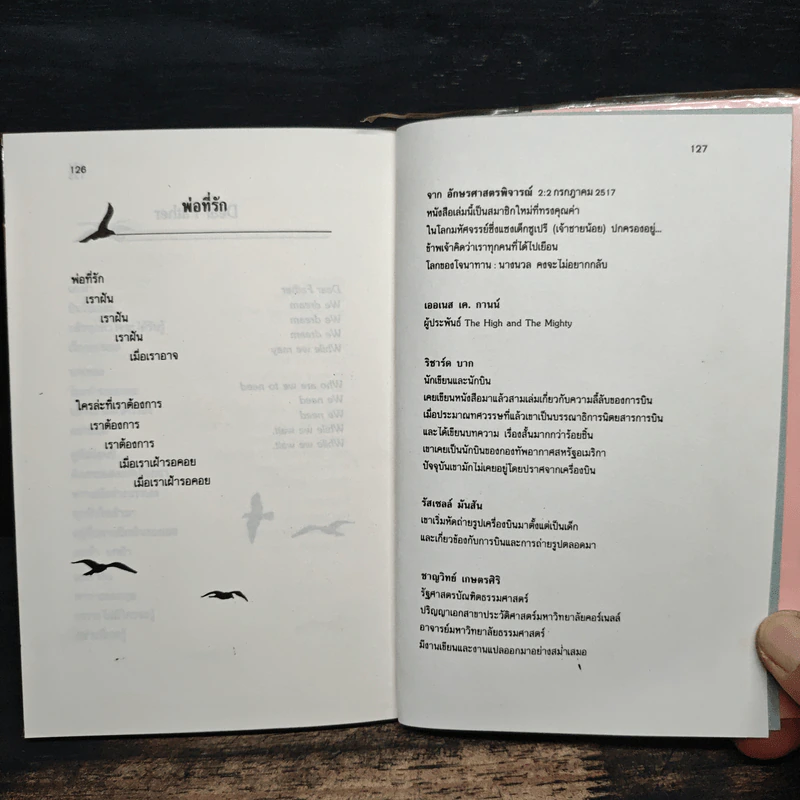 126
พ่อที่รัก
พ่อที่รัก
เราฝัน
เราฝัน
เราฝัน
เมื่อเราอาจ
ใครล่ะที่เราต้องการ
เราต้องการ
เราต้องการ
เมื่อเราเฝ้ารอคอย
เมื่อเราเฝ้ารอคอย
127
จาก อักษรศาสตรพิจารณ์ 2:2 กรกฎาคม 2517
หนังสือเล่มนี้เป็นสมาชิกใหม่ที่ทรงคุณค่า
ในโลกมหัศจรรย์ซึ่งแซงเต็กซูเปรี (เจ้าชายน้อย) ปกครองอยู่...
ข้าพเจ้าคิดว่าเราทุกคนที่ได้ไปเยือน
โลกของโจนาทาน : นางนวล คงจะไม่อยากกลับ
เออเนส เค. กานน์
ผู้ประพันธ์ The High and The Mighty
ริชาร์ด บาก
นักเขียนและนักบิน
เคยเขียนหนังสือมาแล้วสามเล่มเกี่ยวกับความลี้ลับของการบิน
เมื่อประมาณทศวรรษที่แล้วเขาเป็นบรรณาธิการนิตยสารการบิน
และได้เขียนบทความ เรื่องสั้นมากกว่าร้อยชิ้น
เขาเคยเป็นนักบินของกองทัพอากาศสหรัฐอเมริกา
ปัจจุบันเขามักไม่เคยอยู่โดยปราศจากเครื่องบิน
รัสเซลล์ มันสัน
เขาเริ่มหัดถ่ายรูปเครื่องบินมาตั้งแต่เป็นเด็ก
และเกี่ยวข้องกับการบินและการถ่ายรูปตลอดมา
ชาญวิทย์ เกษตรศิริ
รัฐศาสตรบัณฑิตธรรมศาสตร์
ปริญญาเอกสาขาประวัติศาสตร์มหาวิทยาลัยคอร์เนลล์
อาจารย์มหาวิทยาลัยธรรมศาสตร์
มีงานเขียนและงานแปลออกมาอย่างสม่ำเสมอ